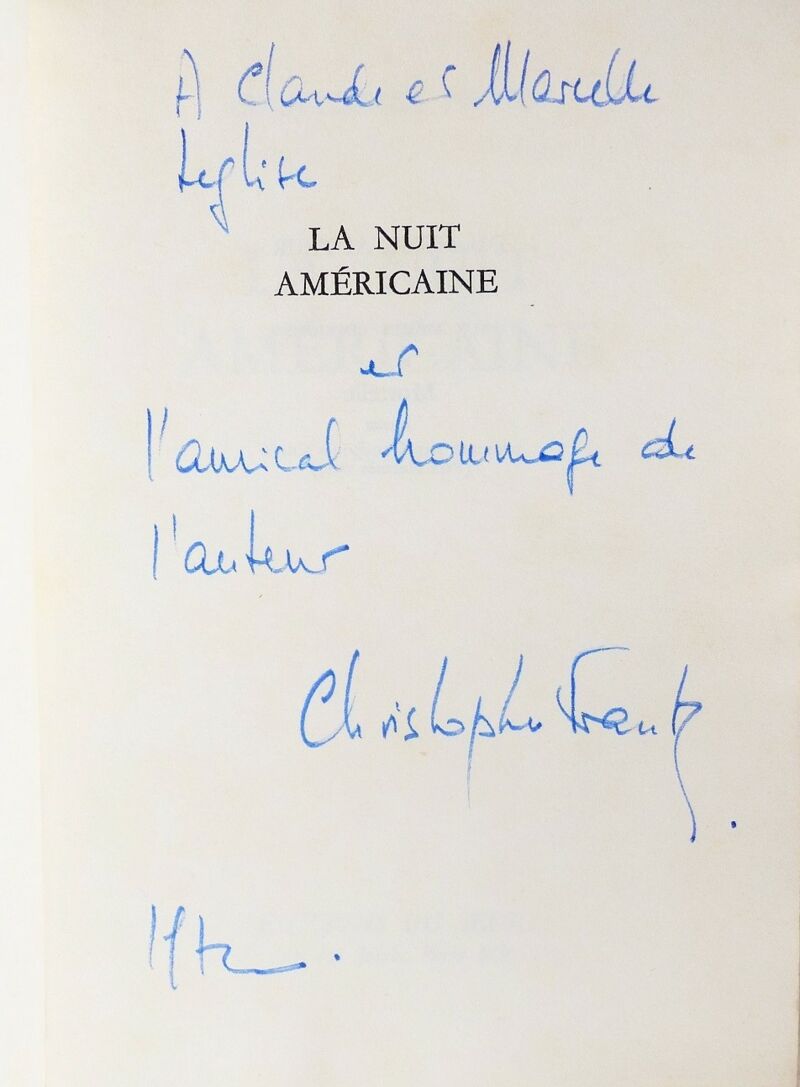 A Claude et Marcelle
Léglise
LA NUIT
AMÉRICAINE
et
l'amical hommage de
l'auteur
Christopher Frank